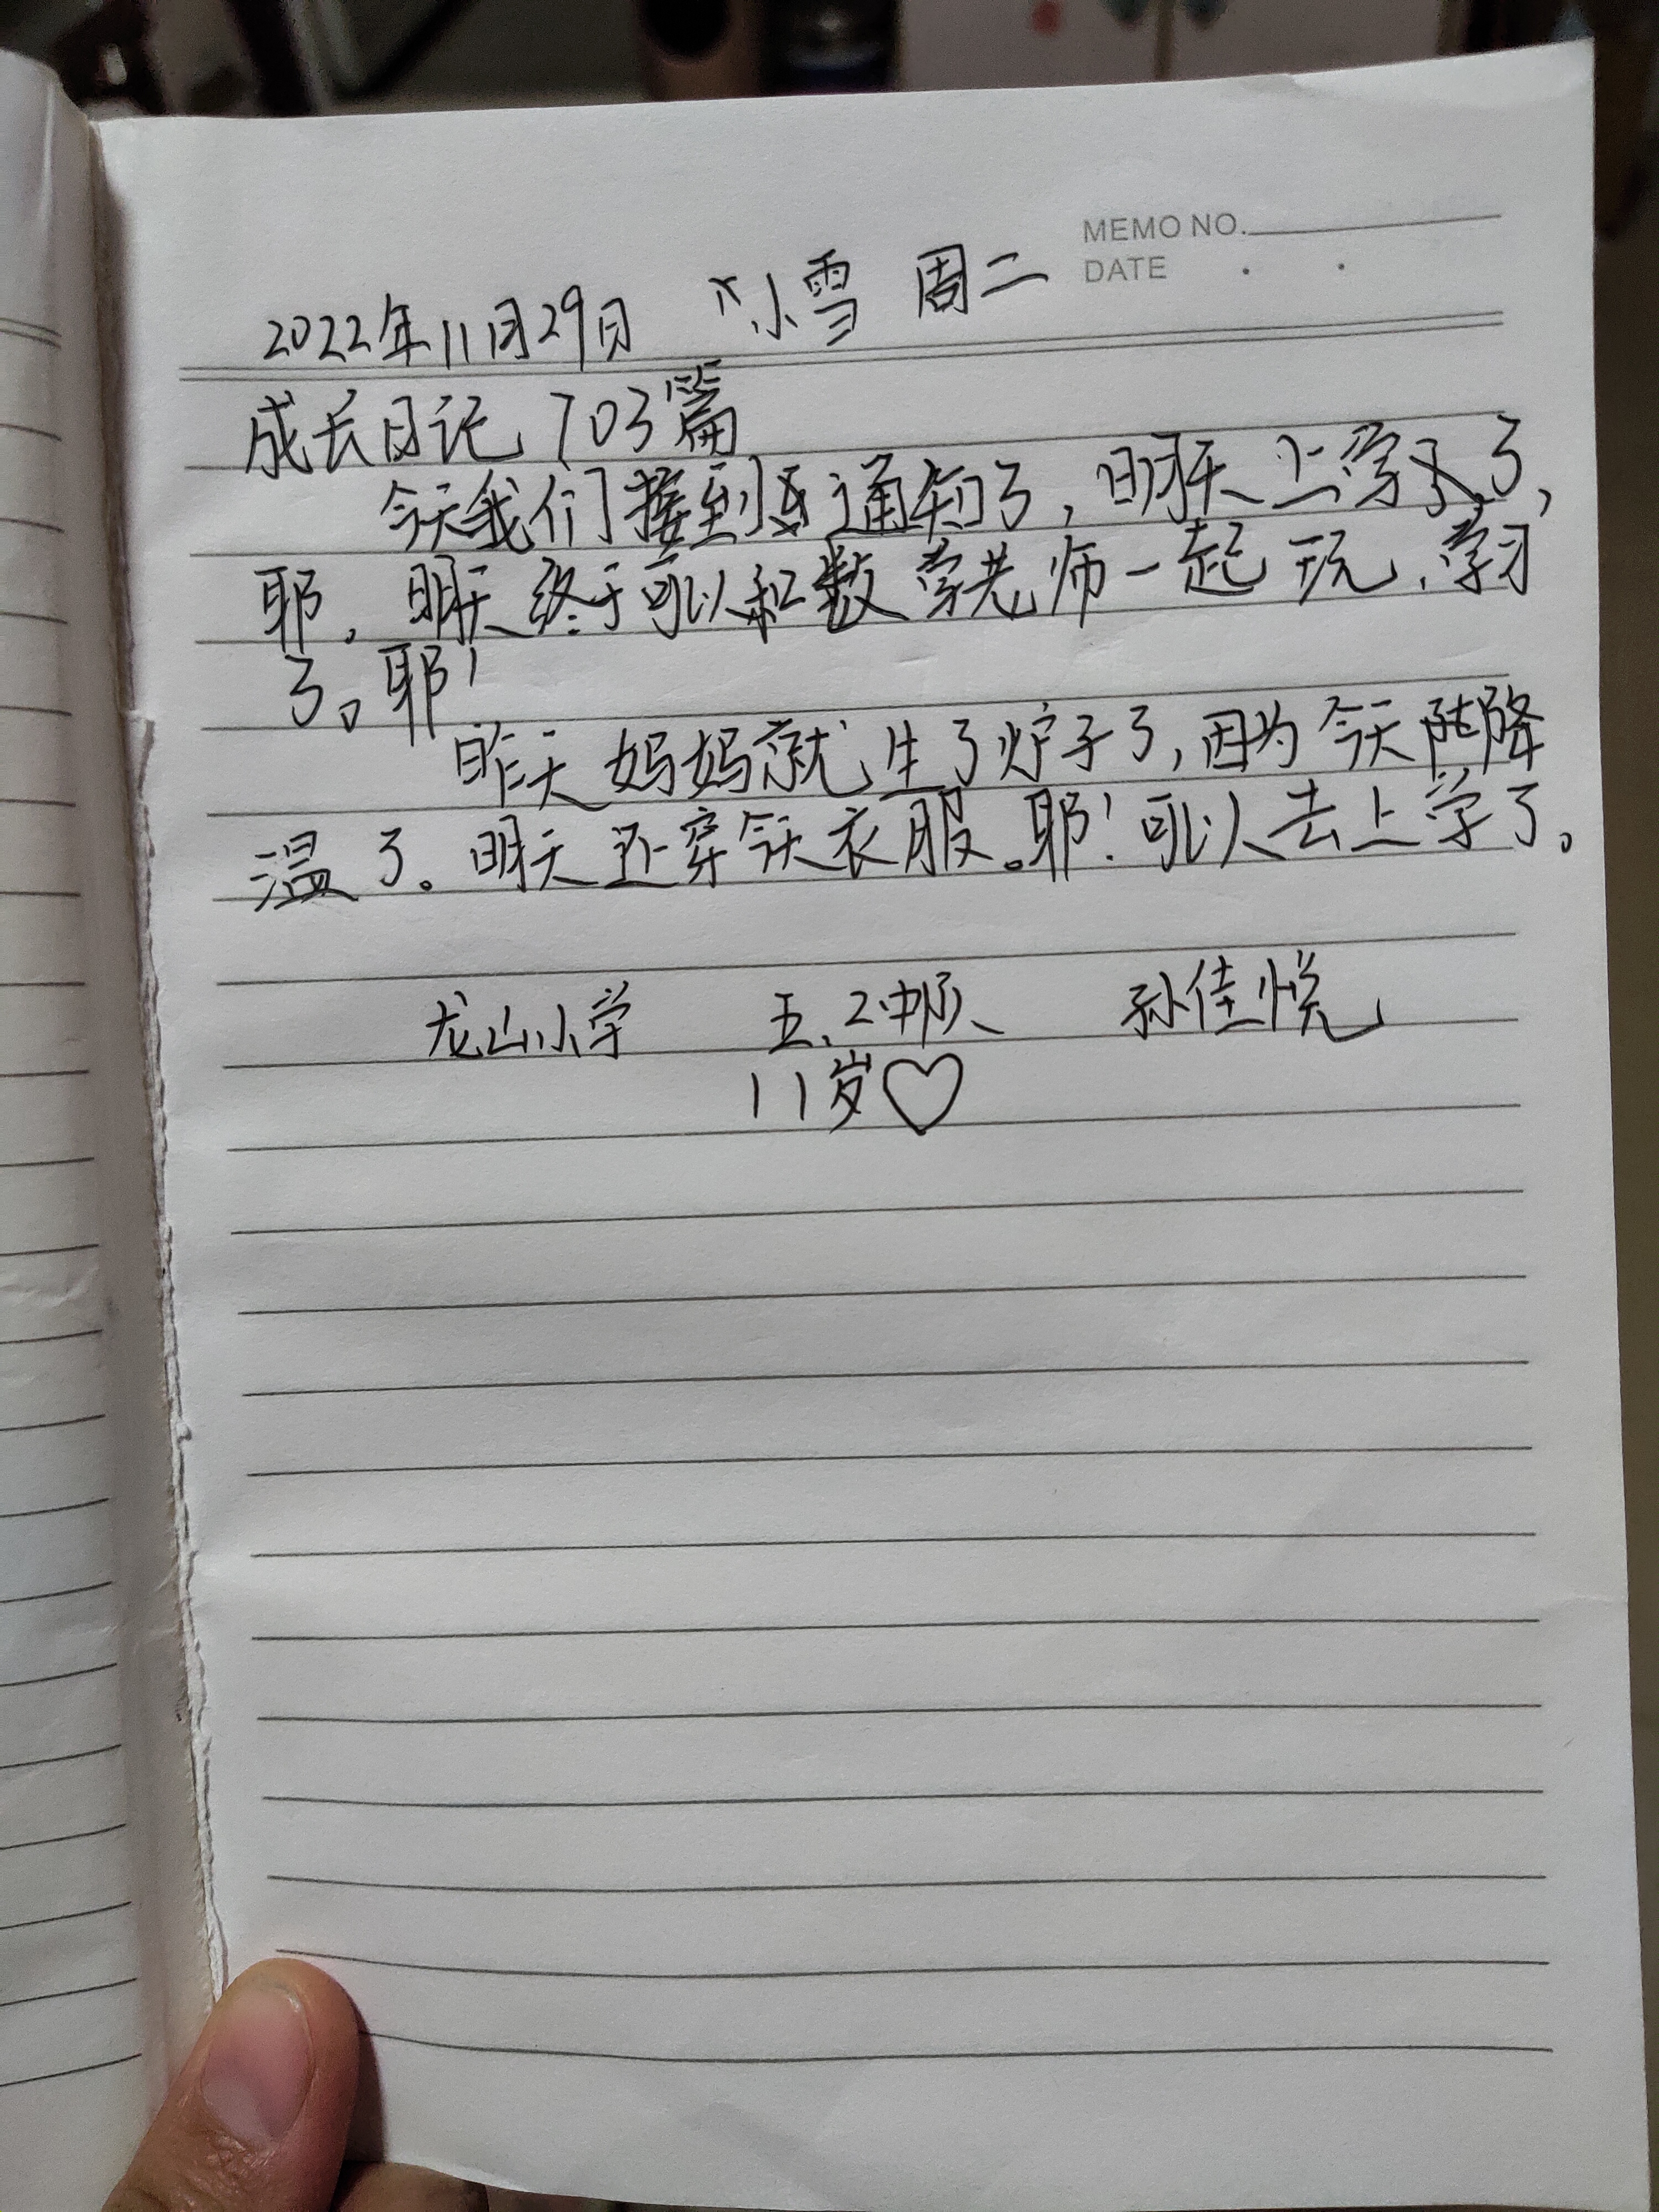 MEMO NO.
DATE
2022年11月29日 小雪 周二
成长日记 703篇
今天我们接到通知了，明天上学了，
耶，明天终于可以和数学老师一起玩、学习
了。耶！
昨天妈妈就生了炉子了，因为今天降
温了。明天还穿今天衣服。耶！可以去上学了。
龙山小学 五.2中队 孙佳悦
11岁♡